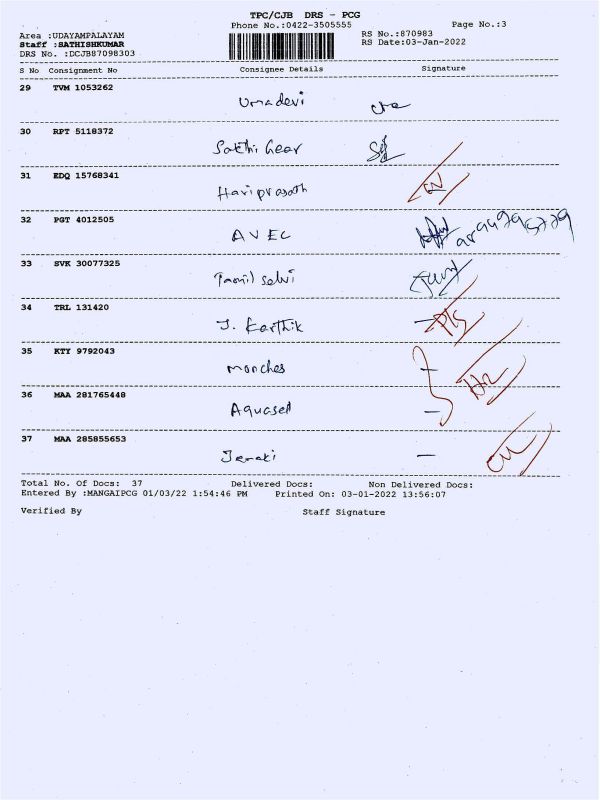 TPC/CJB DRS - PCG
Phone No.:0422-3505555
Page No.:3
Area :UDAYAMPALAYAM
RS No.:870983
Staff :SATHISHKUMAR
RS Date:03-Jan-2022
DRS No. :DCJB87098303
S No Consignment No Consignee Details Signature
29 TVM 1053262
Umadevi
30 RPT 5118372
Sakthi Gear
31 EDQ 15768341
Hariprasath
32 PGT 4012505
AVEC
33 SVK 30077325
Tamil selvi
34 TRL 131420
J. Karthik
35 KTY 9792043
Monches
36 MAA 281765448
Aquasel
37 MAA 285855653
Janaki
Total No. Of Docs: 37 Delivered Docs: Non Delivered Docs:
Entered By :MANGAIPCG 01/03/22 1:54:46 PM Printed On: 03-01-2022 13:56:07
Verified By Staff Signature